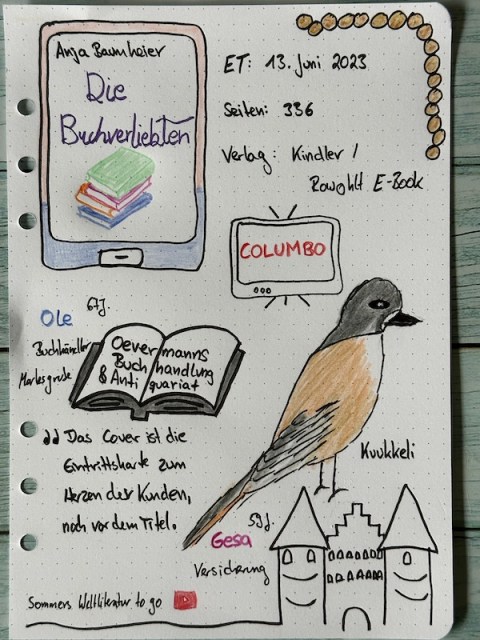 Anja Baumheier
Die
Buchverliebten
ET: 13. Juni 2023
Seiten: 336
Verlag: Kindler /
Rowohlt E-Book
COLUMBO
Ole 67J.
Buchhändler
Marlesgrube
Oevermanns
Buchhandlung
& Antiquariat
Das Cover ist die
Eintrittskarte zum
Herzen der Kunden,
noch vor dem Titel.
Kuukkeli
Gesa
Versicherung
Sommers Weltliteratur to go